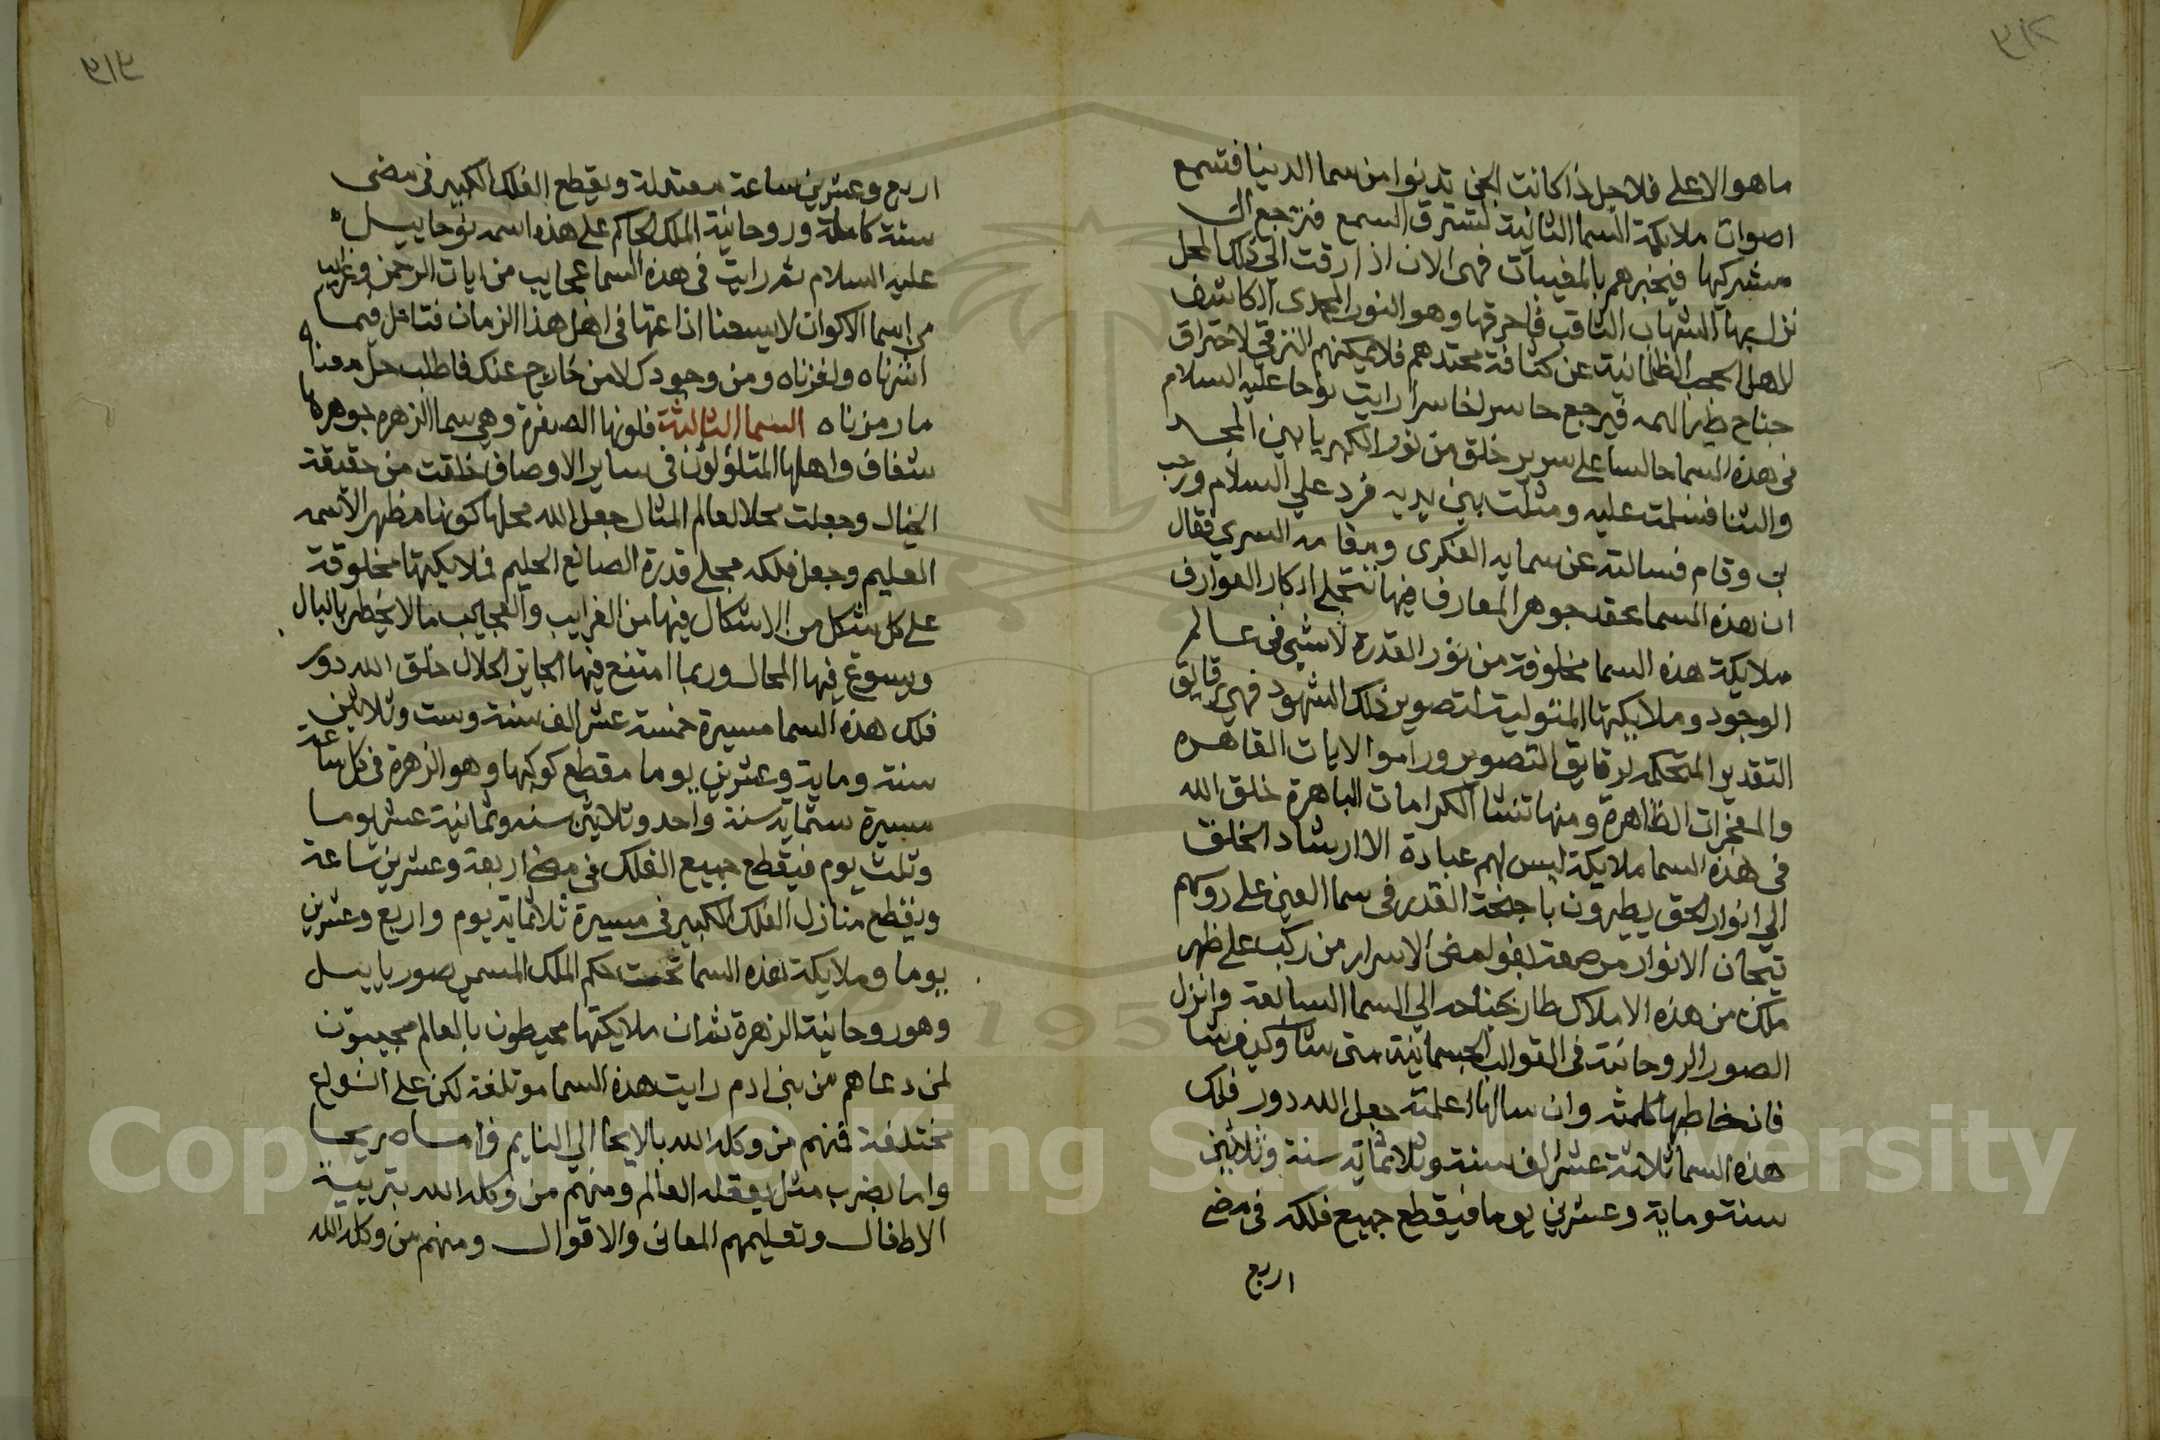 ما هو الاعلى فلاجل ذا كانت الجن تدنوا من سما الدينا فتسمع
اصوات ملايكة السما الثانية لتسترق السمع فترجع الى
مشركيها فيخبرهم بالمغيبات فهى الان اذا رقت الى ذلك المحل
نزل بها الشهاب الثاقب فاحرقها وهو النور المحمدى الكاشف
لاهل الحجب الظلمانية عن كثافة محتدهم فلا يمكنهم الترقى لاحتراق
جناح طير الهمه فيرجع حاسرا خاسرا رايت نوحا عليه السلام
فى هذه السما جالسا على سرير خلق من نور الكبريا بين المجد
والثنا فسلمت عليه ومثلت بين يديه فرد علي السلام ورحب
بى وقام فسالته عن سمايه الفكرى ومقامه السري فقال
ان هذه السما عقد جوهر المعارف فيها تتجلى ابكار العوارف
ملايكة هذه السما مخلوقة من نور القدرة لا شيى فى عالم
الوجود وملايكتها المتولية لتصوير ذلك الشهود فهى رقايق
التقدير المتحكمه لرقايق التصوير وراموا الايات القاهره
والمعجزات الظاهرة ومنها تنشا الكرامات الباهرة خلق الله
فى هذه السما ملايكة ليس لهم عبادة الا ارشاد الخلق
الي انوار الحق يطيرون باجنحة القدر فى سما العين على روسهم
تيجان الانوار مرصعة بغوامض الاسرار من ركب على ظهر
ملك من هذه الاملاك طار بجناحه الي السما السابعة وانزل
الصور الروحانية فى القوالب الجسمانية متى شا وكيف شا
فان خاطبها كلمته وان سالها اعلمته جعل الله دور فلك
هذه السما ثلاثة عشر الف سنة وثلاثماية سنة وثلاثين
سنة وماية وعشرين يوما فيقطع جميع فلكه فى مضى
اربع
اربع وعشرين ساعة معتدلة ويقطع الفلك الكبير فى مضى
سنة كاملة وروحانية الملك الحاكم على هذه اسمه نوحاييل
عليه السلام ثم رايت فى هذه السما عجايب من ايات الرحمن وغرايب
من اسما الاكوان لا يسعنا اذاعتها فى اهل هذا الزمان فتامل فيما
اشرناه والغزناه ومن وجودك لا من خارج عنك فاطلب حل معناه
ما رمزناه السما الثالثة فلونها الصفرة وهي سما الزهره جوهرها
شفاف واهلها المتلونون فى ساير الاوصاف خلقت من حقيقة
الخيال وجعلت محلا لعالم المثال جعل الله محلها كونها مظهر الاسمه
العليم وجعل فلكه مجلى قدرة الصانع الحليم فملايكتها مخلوقة
على كل شكل من الاشكال فيها من الغرايب والعجايب ما لا يخطر بالبال
ويسوغ فيها المحال وربما امتنع فيها الجايز الحلال خلق الله دور
فلك هذه السما مسيرة خمسة عشر الف سنة وست وثلاثين
سنة وماية وعشرين يوما مقطع كوكبها وهو الزهرة فى كل ساعة
مسيرة ستماية سنة واحد وثلاثين سنه وثمانية عشر يوما
وثلث يوم فيقطع جميع الفلك فى مضى اربعة وعشرين ساعة
ويقطع منازل الفلك الكبير فى مسيرة ثلاثماية يوم واربع وعشرين
يوما وملايكة هذه السما تحت حكم الملك المسمى صورياييل
وهو روحانية الزهرة ثم ان ملايكتها محيطون بالعالم مجيبون
لمن دعاهم من بنى ادم رايت هذه السما موتلفة لكن على انواع
مختلفة فمنهم من وكله الله بالايحا الي النايم فاما صريحا
واما بضرب مثل يعقله العالم ومنهم من وكله الله بتربية
الاطفال وتعليمهم المعانى والاقوال ومنهم من وكله الله
Copyright © King Saud University
1957